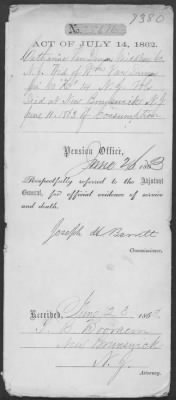 7380
No.
ACT OF JULY 14, 1862.
Catharine Van Duyn Middlesex Co.
N.J. Wid of Wm Van Duyn
14 N.J. Vols
Died at New Brunswick N.J.
June 11. 1863 of Consumption
Pension Office,
June 26 1863
Respectfully referred to the Adjutant
General, for official evidence of service
and death.
Joseph H Barrett
Commissioner.
Received, June 1863.
Voorhees
New Brunswick
N. J.
Attorney.